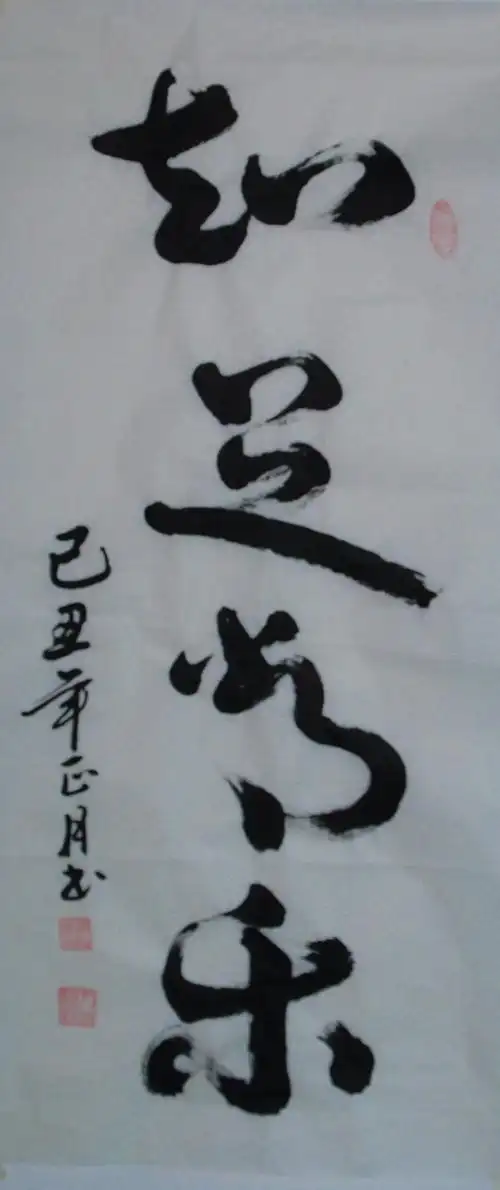 知足常乐
己丑年正月书